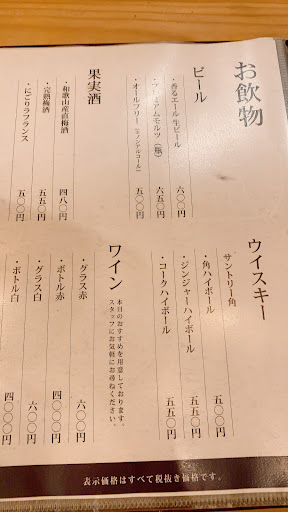 お飲物
ビール
・香るエール 生ビール 六〇〇円
・プレミアムモルツ（瓶） 六五〇円
・オールフリー（※ノンアルコール） 五〇〇円
果実酒
・和歌山産直梅酒 四八〇円
・完熟梅酒 五五〇円
・にごりラフランス 五〇〇円
ウイスキー
サントリー角
・角ハイボール 五〇〇円
・ジンジャーハイボール 五五〇円
・コークハイボール 五五〇円
ワイン
本日のおすすめを用意しております。
スタッフにお気軽にお尋ねください。
・グラス赤 六〇〇円
・ボトル赤 四〇〇〇円
・グラス白 六〇〇円
・ボトル白 四〇〇〇円
表示価格はすべて税抜き価格です。